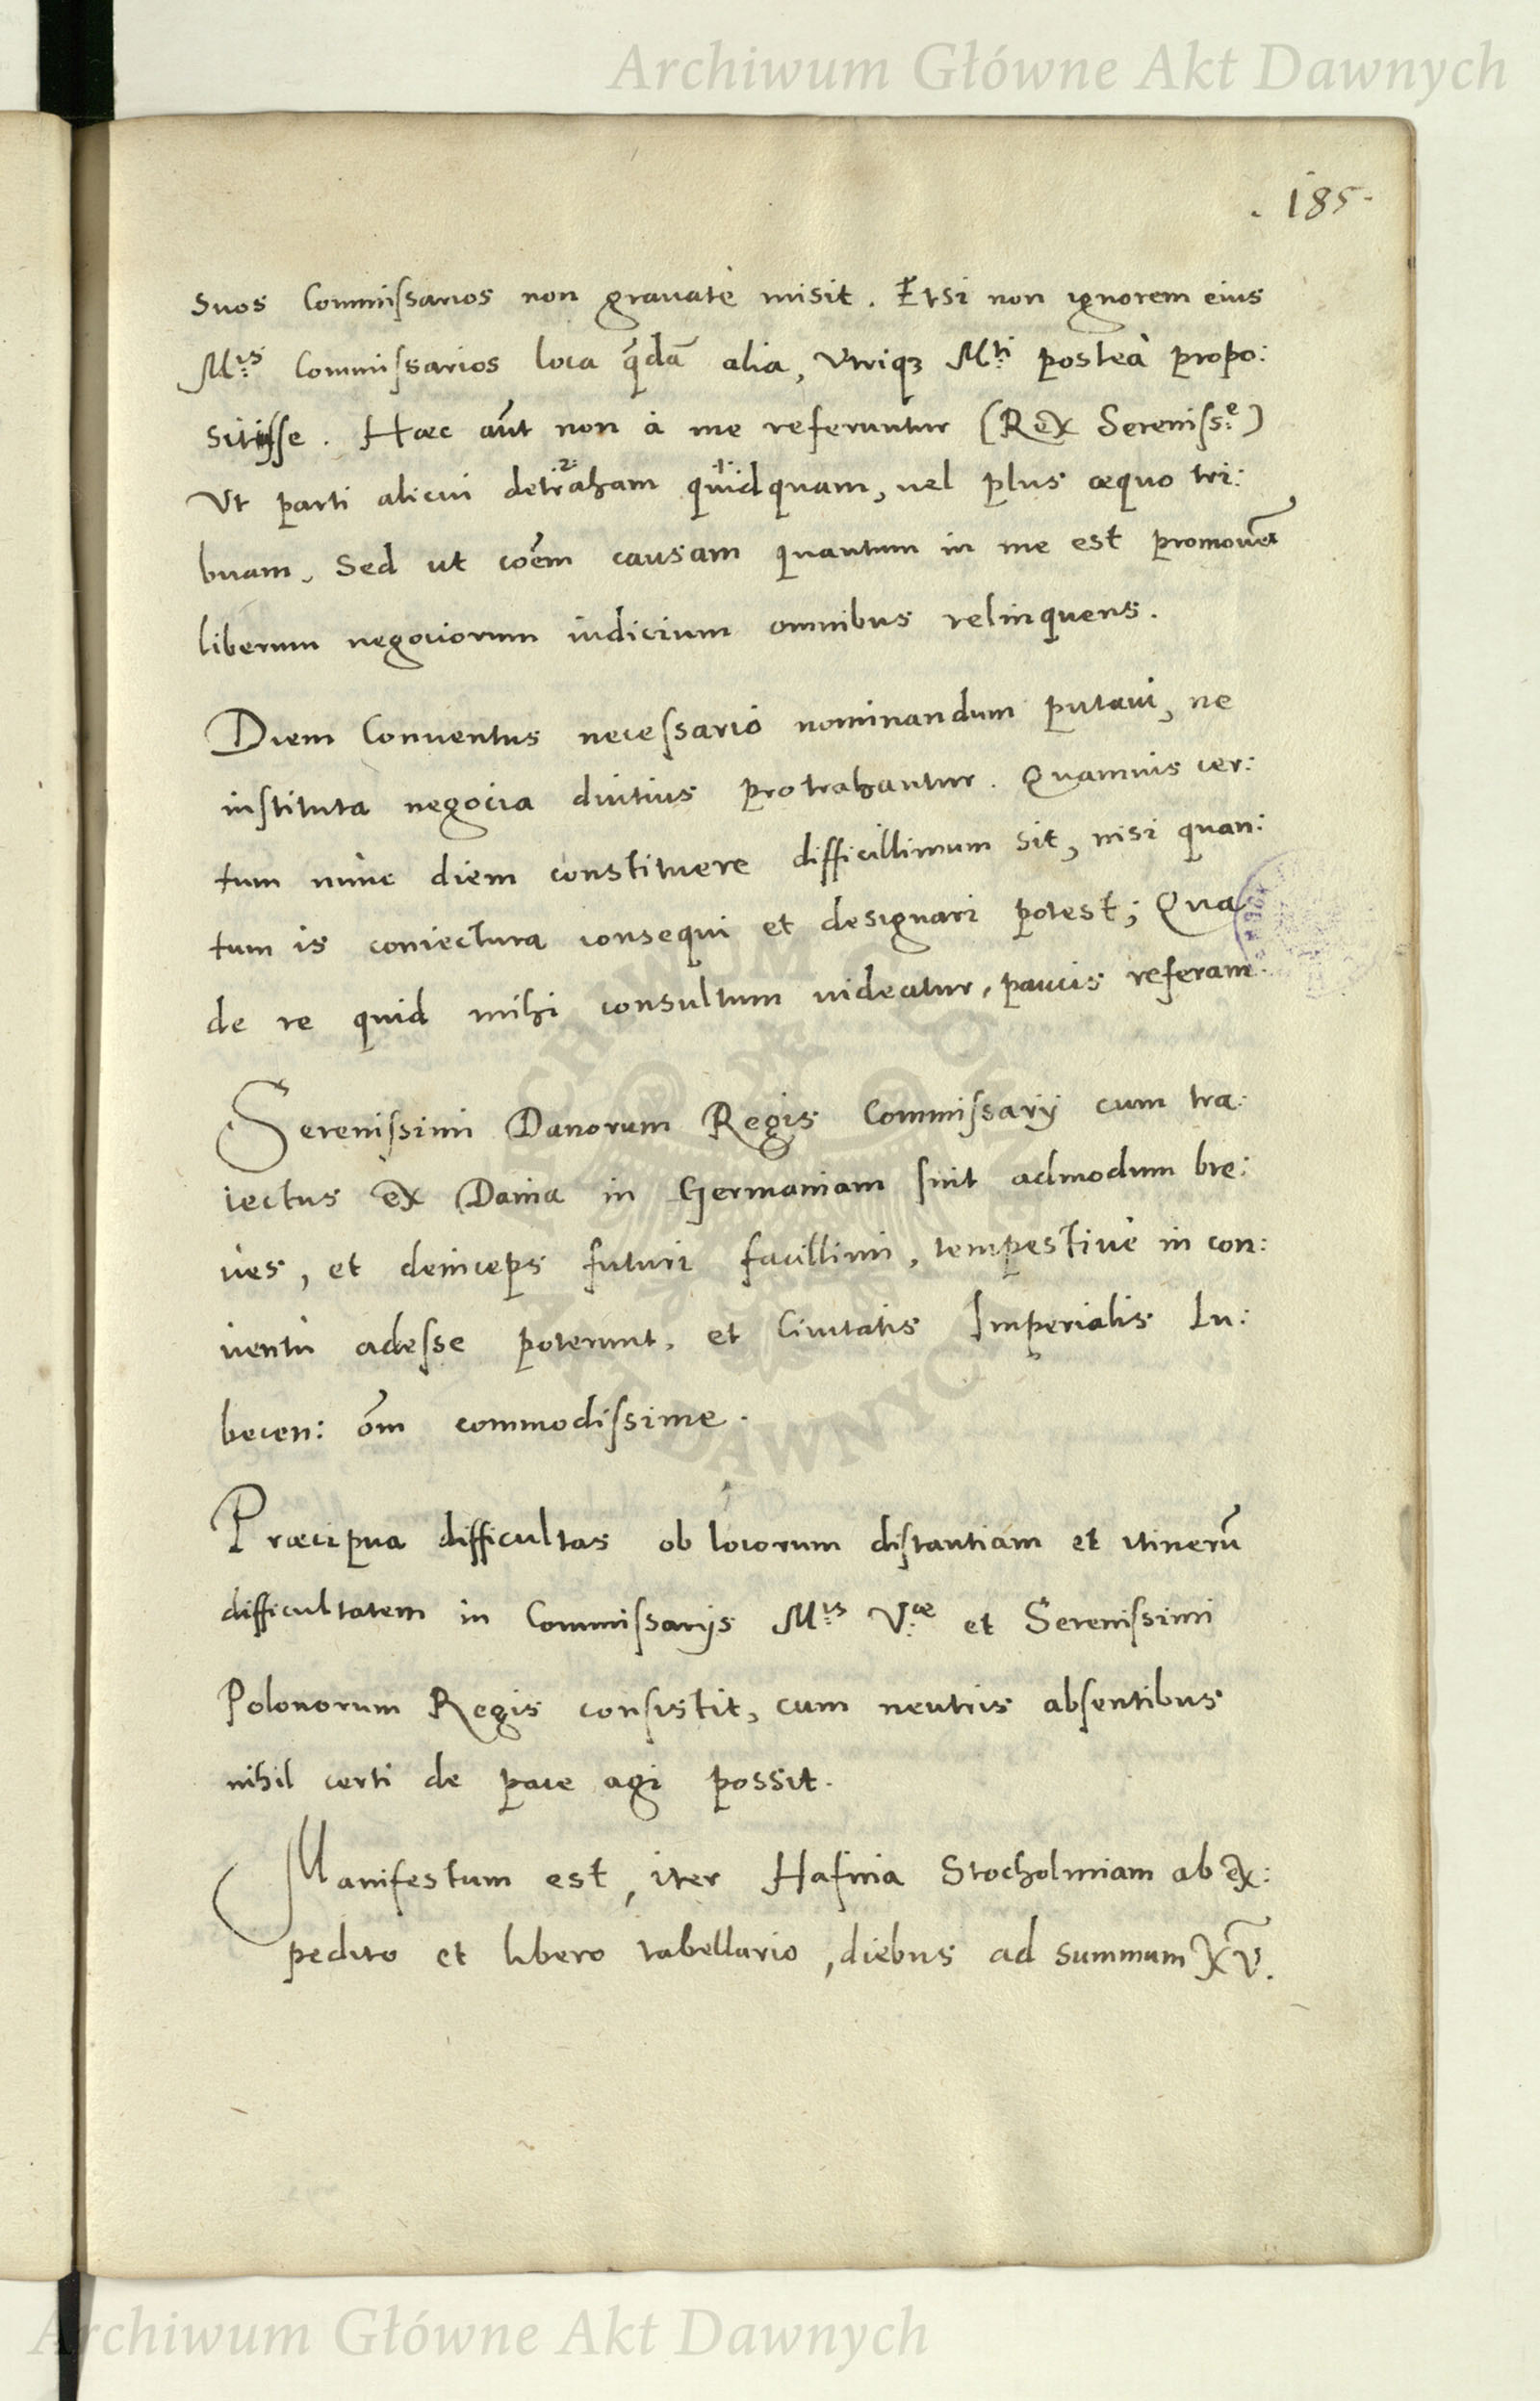 Archiwum Główne Akt Dawnych
. 185.
Suos Commissarios non grauatè misit. Etsi non ignorem eius
M:tis Commissarios loca q̃dã alia, Vtriq3 M:ti posteà propo:
sitisse. Haec aũt non à me referuntur (Rex Sereniss:e)
Vt parti alicui detraham quidquam, uel plus aequo tri:
buam, Sed ut cõem causam quantum in me est promoueã
liberum negociorum iudicium omnibus relinquens.
Diem Conuentus necessariò nominandum putaui, ne
instituta negocia diutius protrahantur. Quamuis cer:
tum nunc diem constituere difficillimum sit, nisi quan:
tum is coniectura consequi et designari potest; Qua
de re quid mihi consultum uideatur, paucis referam.
Serenissimi Danorum Regis Commissarij cum tra:
iectus ex Dania in Germaniam sint admodum bre:
ues, et deinceps futuri facillimi, tempestiuè in con:
uentu adesse poterunt, et Ciuitatis Imperialis Lu:
becen: õm commodissime.
Praecipua difficultas ob locorum distantiam et itinerũ
difficultatem in Commissarijs M:tis V:rae et Serenissimi
Polonorum Regis consistit, cum neutris absentibus
nihil certi de pace agi possit.
Manifestum est, iter Hafnia Stocholmiam ab ex:
pedito et libero tabellario, diebus ad summum XV.
ARCHIWUM GŁÓWNE
AKT DAWNYCH
Archiwum Główne Akt Dawnych